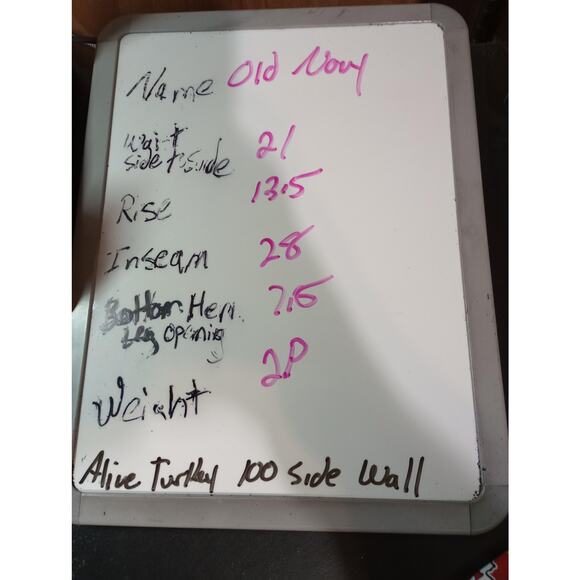 Name Old Navy
Waist
side to side 21
Rise 13.5
Inseam 28
Bottom Hem 7.5
Leg Opening
Weight 2P
Alive Turkey 100 side wall